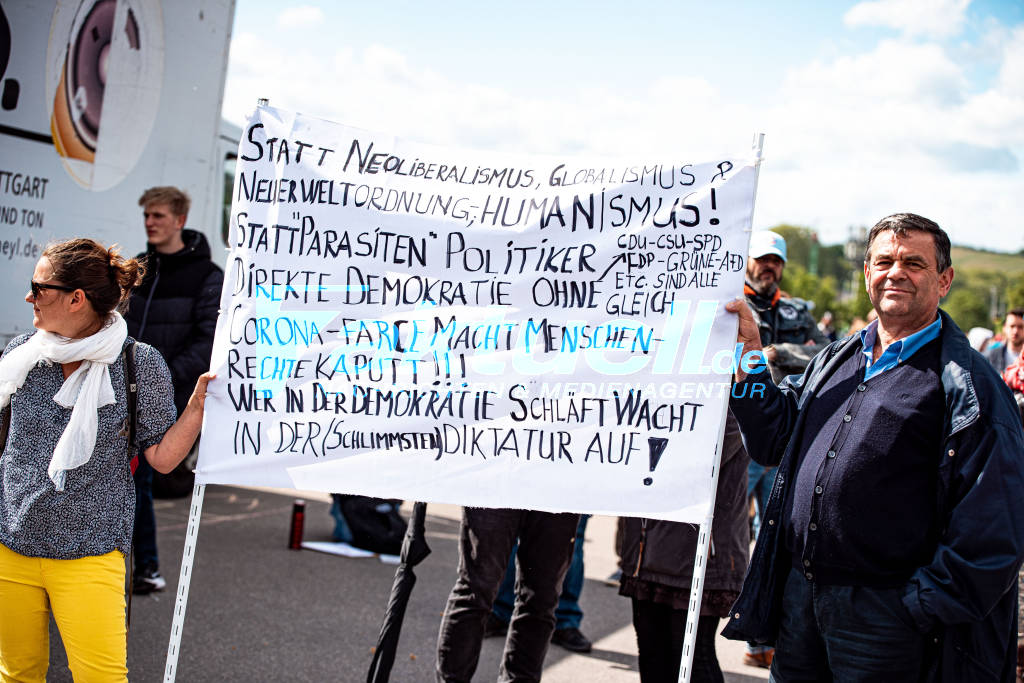 TTGART
ND TON
neyl.de
STATT NEOLIBERALISMUS, GLOBALISMUS &
NEUER WELTORDNUNG; HUMANISMUS!
STATT "PARASITEN" POLITIKER CDU-CSU-SPD
FDP-GRÜNE-AFD
DIREKTE DEMOKRATIE OHNE ETC. SIND ALLE
GLEICH
CORONA-FARCE MACHT MENSCHEN-
RECHTE KAPUTT!!!
WER IN DER DEMOKRATIE SCHLÄFT WACHT
IN DER (SCHLIMMSTEN) DIKTATUR AUF!
aktuell.de
& MEDIENAGENTUR